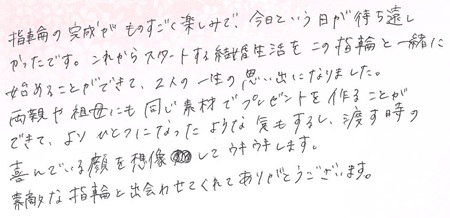 指輪の完成がものすごく楽しみで、今日という日が待ち遠し
かったです。これからスタートする結婚生活をこの指輪と一緒に
始めることができて、2人の一生の思い出になりました。
両親や祖母にも同じ素材でプレゼントを作ることが
できて、よりひとつになったような気もするし、渡す時の
喜んでいる顔を想像してウキウキします。
素敵な指輪と出会わせてくれてありがとうございます。